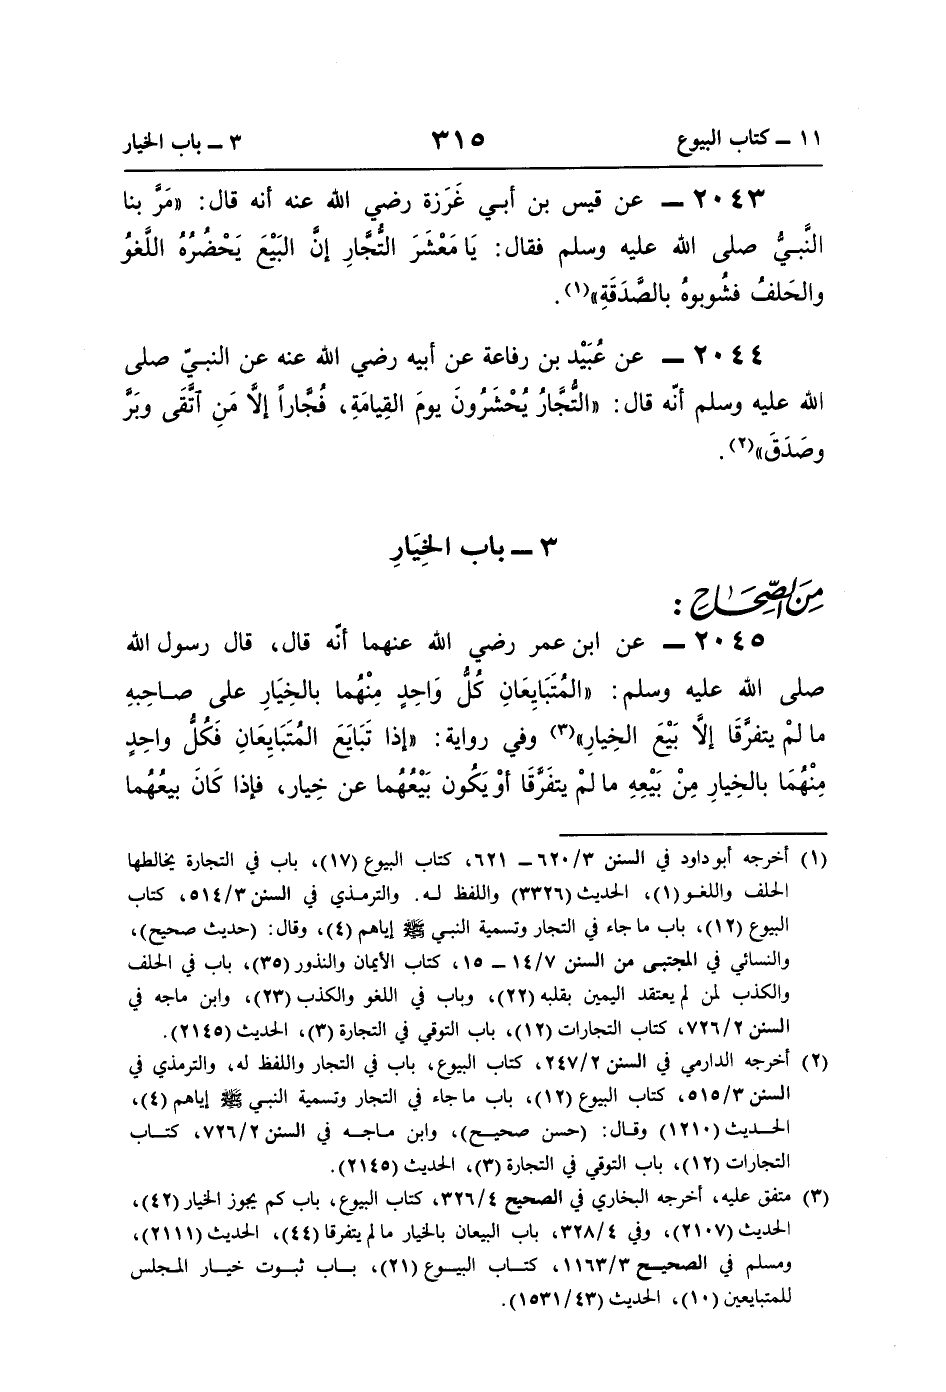 ١١ ــ كتاب البيوع ٣١٥ ٣ ــ باب الخيار
٢٠٤٣ ــ عن قيس بن أبي غَرَزة رضي الله عنه أنه قال: «مَرَّ بنا
النَّبيُّ صلى الله عليه وسلم فقال: يَا مَعْشَرَ التُّجَّارِ إنَّ البَيْعَ يَحْضُرُهُ اللَّغوُ
والحَلفُ فشُوبوهُ بالصَّدَقَةِ»(١).
٢٠٤٤ ــ عن عُبَيْد بن رفاعة عن أبيه رضي الله عنه عن النبيّ صلى
الله عليه وسلم أنّه قال: «التُّجَّارُ يُحْشَرُونَ يومَ القِيامَةِ، فُجَّاراً إلاَّ مَنِ ٱتَّقَى وبَرَّ
وصَدَقَ»(٢).
٣ ــ باب الخِيَارِ
مِنَ الصِّحَاحِ :
٢٠٤٥ ــ عن ابن عمر رضي الله عنهما أنّه قال، قال رسول الله
صلى الله عليه وسلم: «المُتَبَايِعَانِ كُلُّ وَاحِدٍ مِنْهُما بالخِيَارِ على صاحِبِهِ
ما لمْ يتفرَّقَا إلاَّ بَيْعَ الخِيارِ»(٣) وفي رواية: «إذا تَبَايَعَ المُتَبَايِعَانِ فَكُلُّ واحِدٍ
مِنْهُمَا بالخِيارِ مِنْ بَيْعِهِ ما لمْ يتفَرَّقَا أوْ يَكُون بَيْعُهُما عن خِيار، فإذا كَانَ بيعُهُما
(١) أخرجه أبو داود في السنن ٦٢٠/٣ ــ ٦٢١، كتاب البيوع (١٧)، باب في التجارة يخالطها
الحلف واللغو (١)، الحديث (٣٣٢٦) واللفظ له. والترمذي في السنن ٥١٤/٣، كتاب
البيوع (١٢)، باب ما جاء في التجار وتسمية النبي ﷺ إياهم (٤)، وقال: (حديث صحيح)،
والنسائي في المجتبى من السنن ١٤/٧ ــ ١٥، كتاب الأيمان والنذور (٣٥)، باب في الحلف
والكذب لمن لم يعتقد اليمين بقلبه (٢٢)، وباب في اللغو والكذب (٢٣)، وابن ماجه في
السنن ٧٢٦/٢، كتاب التجارات (١٢)، باب التوقي في التجارة (٣)، الحديث (٢١٤٥).
(٢) أخرجه الدارمي في السنن ٢٤٧/٢، كتاب البيوع، باب في التجار واللفظ له، والترمذي في
السنن ٥١٥/٣، كتاب البيوع (١٢)، باب ما جاء في التجار وتسمية النبي ﷺ إياهم (٤)،
الحديث (١٢١٠) وقال: (حسن صحيح)، وابن ماجه في السنن ٧٢٦/٢، كتاب
التجارات (١٢)، باب التوقي في التجارة (٣)، الحديث (٢١٤٥).
(٣) متفق عليه، أخرجه البخاري في الصحيح ٣٢٦/٤، كتاب البيوع، باب كم يجوز الخيار (٤٢)،
الحديث (٢١٠٧)، وفي ٣٢٨/٤، باب البيعان بالخيار ما لم يتفرقا (٤٤)، الحديث (٢١١١)،
ومسلم في الصحيح ١١٦٣/٣، كتاب البيوع (٢١)، باب ثبوت خيار المجلس
للمتبايعين (١٠)، الحديث (١٥٣١/٤٣).